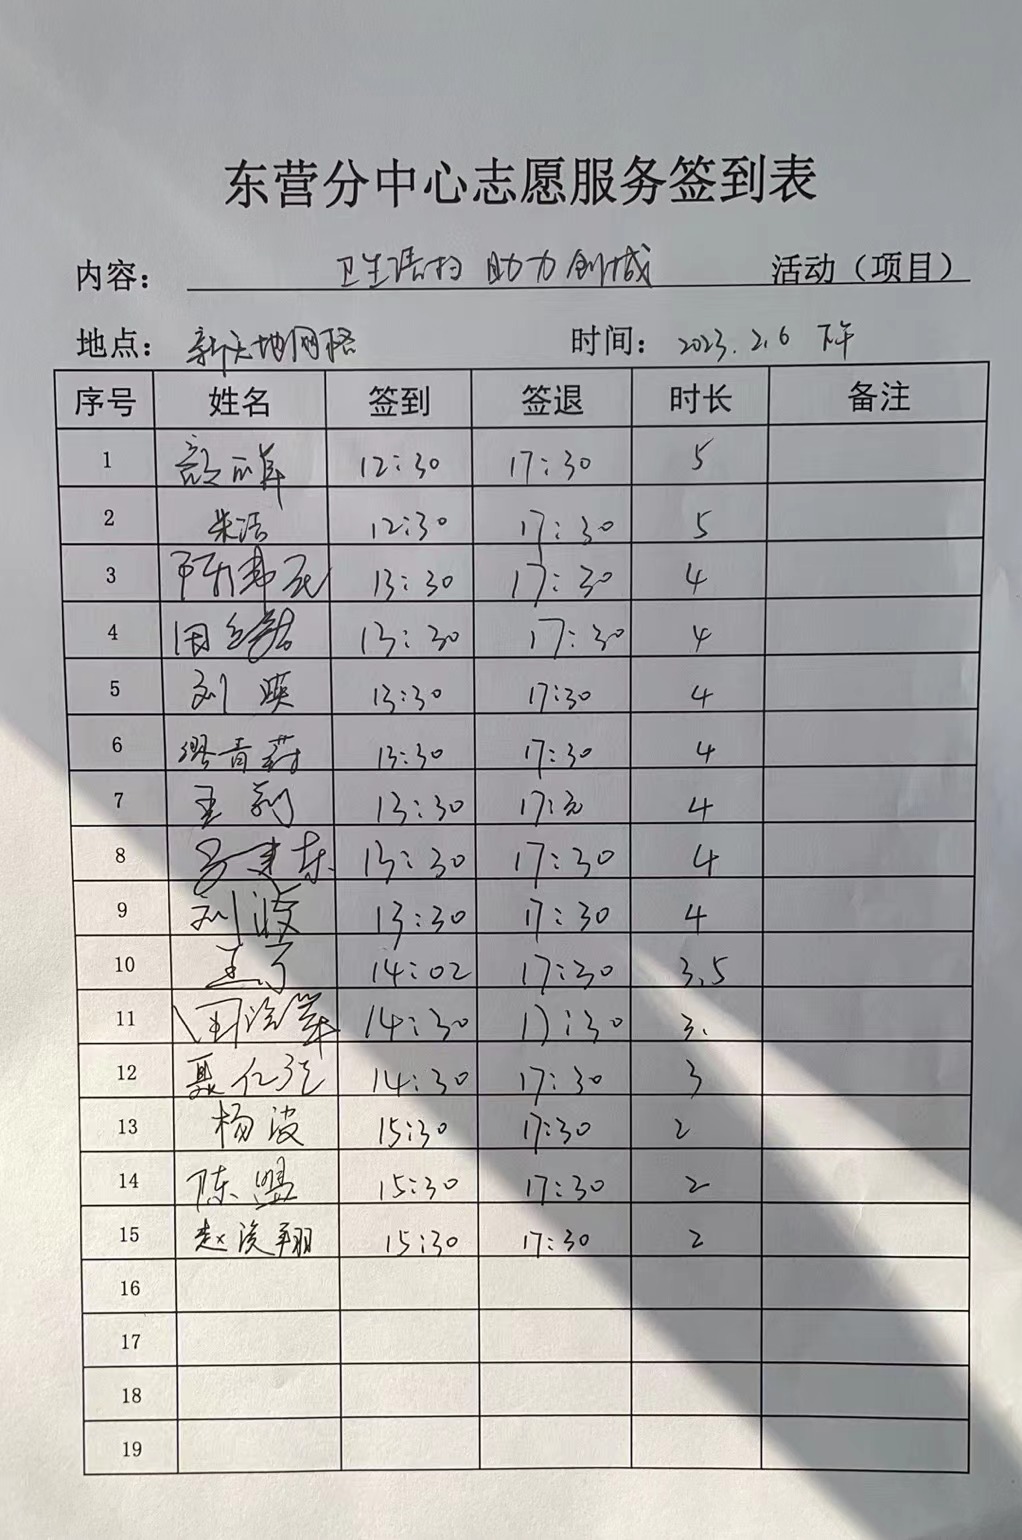 东营分中心志愿服务签到表
内容： 卫生清扫 助力创城 活动（项目）
地点： 新天地网格 时间： 2023.2.6 下午
序号 姓名 签到 签退 时长 备注
1 12:30 17:30 5
2 朱浩 12:30 17:30 5
3 13:30 17:30 4
4 13:30 17:30 4
5 刘 13:30 17:30 4
6 青 13:30 17:30 4
7 王莉 13:30 17:30 4
8 13:30 17:30 4
9 刘波 13:30 17:30 4
10 14:02 17:30 3.5
11 14:30 17:30 3.
12 聂仁 14:30 17:30 3
13 杨波 15:30 17:30 2
14 陈盟 15:30 17:30 2
15 赵浚翔 15:30 17:30 2
16
17
18
19